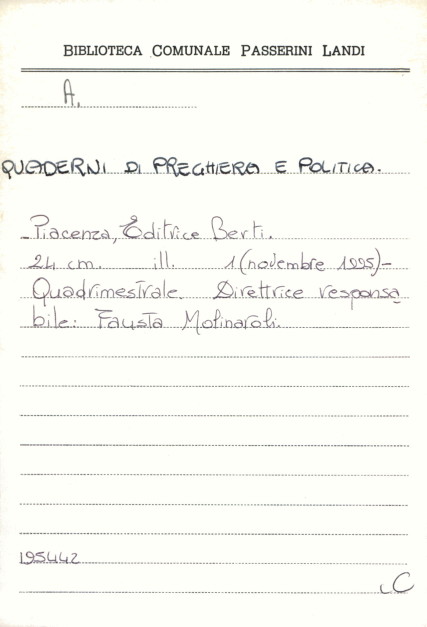 BIBLIOTECA COMUNALE PASSERINI LANDI
A.
QUADERNI DI PREGHIERA E POLITICA.
-Piacenza, Editrice Berti.
24 cm. ill. 1 (novembre 1995)-
Quadrimestrale. Direttrice responsa
bile: Fausta Molinaroli.
195442
C